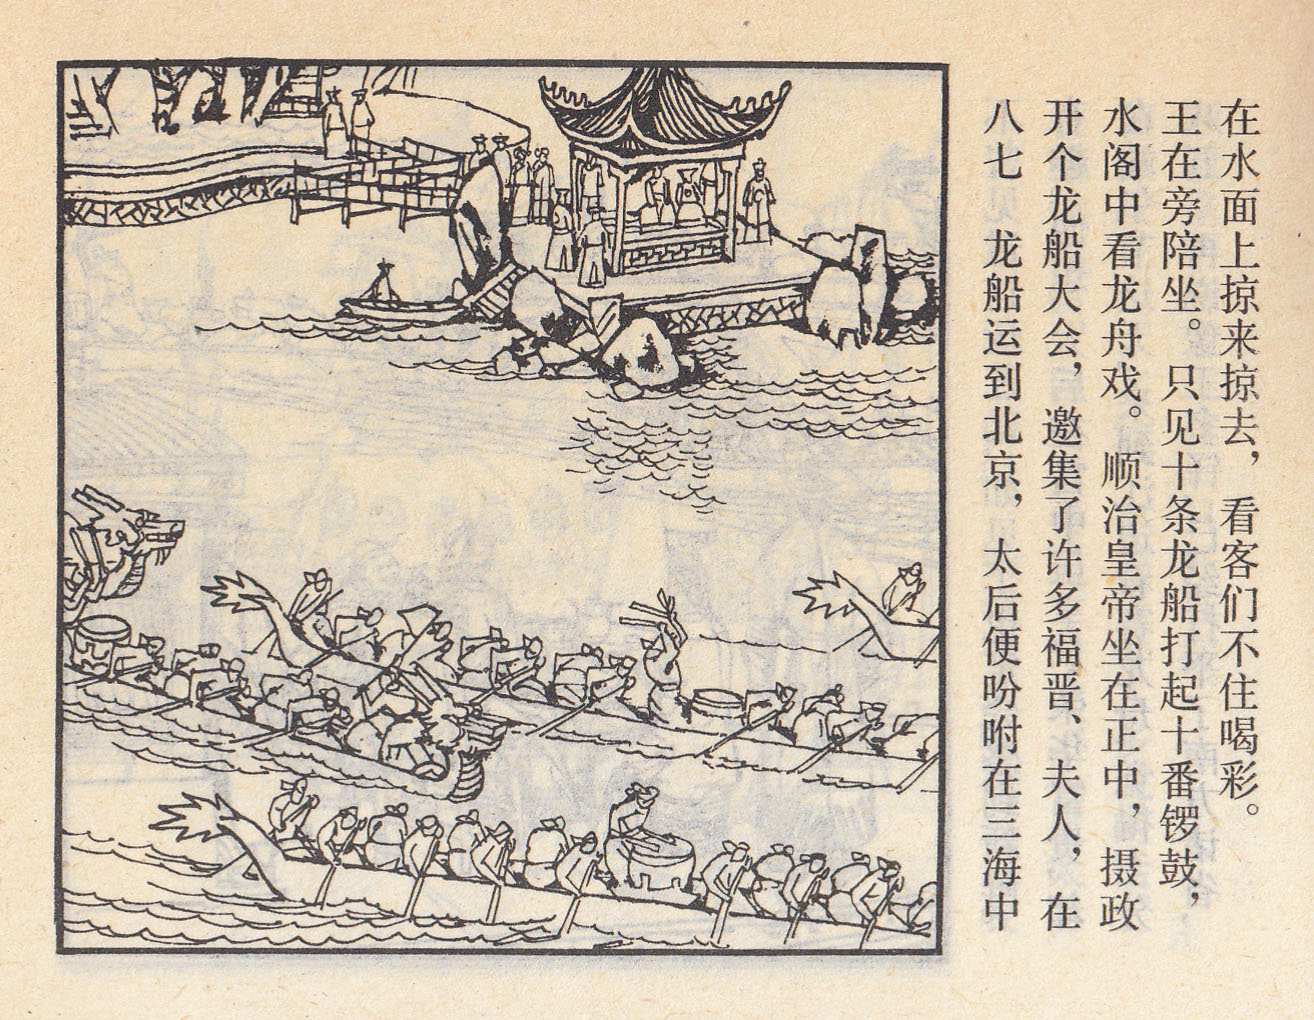 八七 龙船运到北京，太后便吩咐在三海中
开个龙船大会，邀集了许多福晋、夫人，在
水阁中看龙舟戏。顺治皇帝坐在正中，摄政
王在旁陪坐。只见十条龙船打起十番锣鼓，
在水面上掠来掠去，看客们不住喝彩。